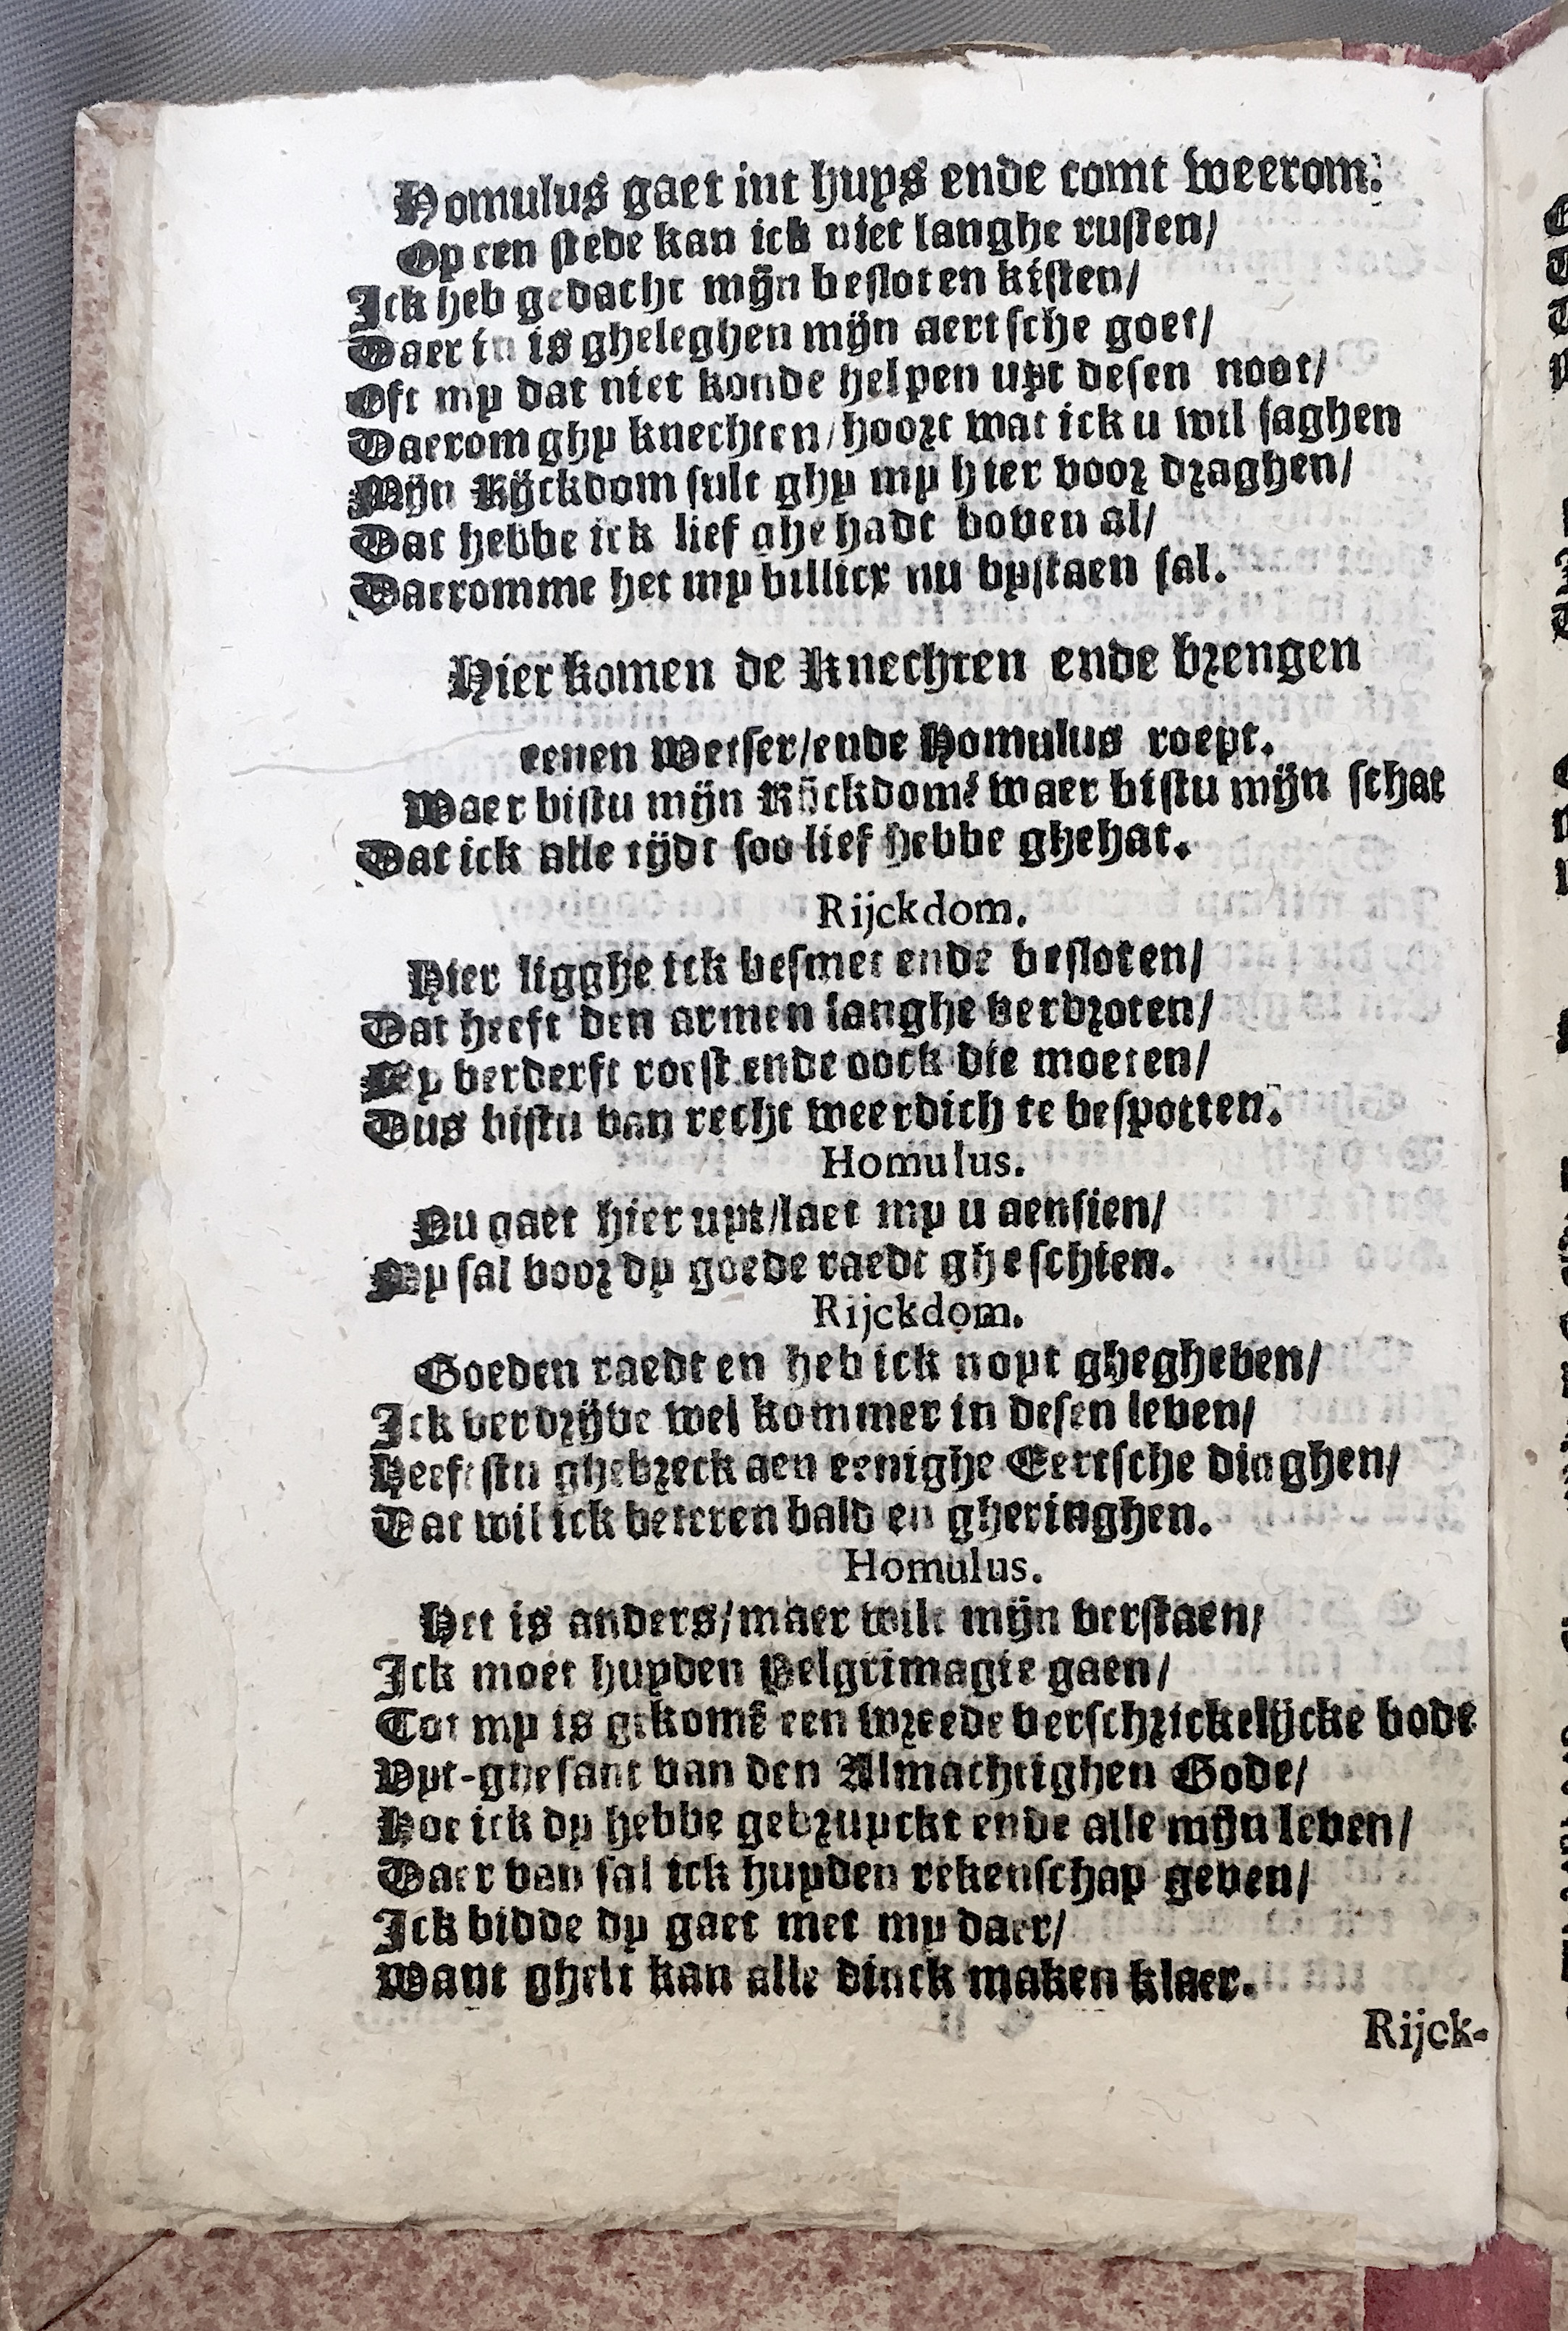 Homulus gaet int huys ende comt weerom.
Op een stede kan ick niet langhe rusten/
Ick heb gedacht mijn besloten kisten/
Daer in is gheleghen mijn aertsche goet/
Oft my dat niet konde helpen uyt desen noot/
Daerom ghy knechten/hoort wat ick u wil saghen
Mijn Rijckdom sult ghy my hier voor draghen/
Dat hebbe ick lief ghehadt boven al/
Daeromme het my billicx nu bystaen sal.
Hier komen de Knechten ende brengen
eenen Wetser/ende Homulus roept.
Waer bistu mijn Rijckdom? waer bistu mijn schat
Dat ick alle tijdt soo lief hebbe ghehat.
Rijckdom.
Hier ligghe ick besmet ende besloten/
Dat heeft den armen langhe verdroten/
My verderft roest ende oock die moeten/
Dus bistu van recht weerdich te bespotten.
Homulus.
Nu gaet hier uyt/laet my u aensien/
My sal voor dy goede raedt gheschien.
Rijckdom.
Goeden raedt en heb ick noyt ghegheven/
Ick verdrijve wel kommer in desen leven/
Heeftstu ghebreck aen eenighe Eertsche dinghen/
Dat wil ick beteren bald en gheringhen.
Homulus.
Het is anders/maer wilt mijn verstaen/
Ick moet huyden Pelgrimagie gaen/
Tot my is gekomẽ een wreede verschrickelijcke bode
Vyt-ghesant van den Almachtighen Gode/
Hoe ick dy hebbe gebruyckt ende alle mijn leven/
Daer van sal ick huyden rekenschap geven/
Ick bidde dy gaet met my daer/
Want ghelt kan alle dinck maken klaer.
Rijck-